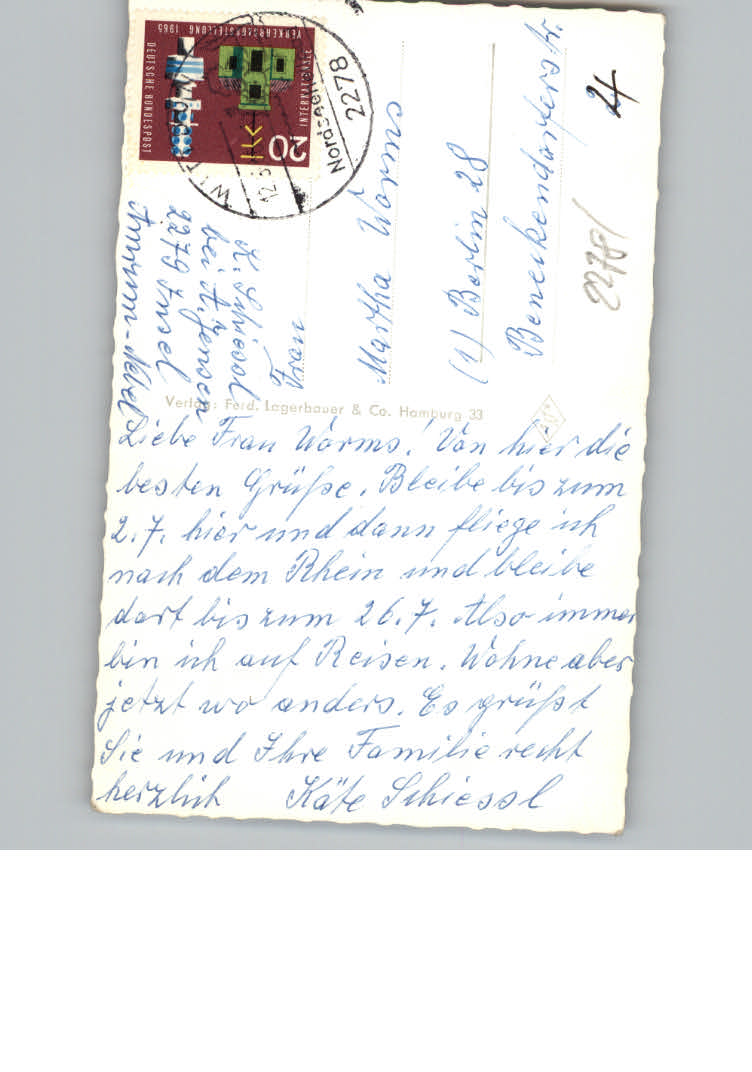 DEUTSCHE BUNDESPOST
INTERNATIONALE
VERKEHRSAUSSTELLUNG 1965
20
2278
12.
K. Schiessl
bei A. Jensen
2279 Insel
Amrum-Nebel
Frau
Martha Worms
(1) Berlin 28
Beneckendorferstr.
24
2278/
Verlag: Ferd. Lagerbauer & Co. Hamburg 33
Liebe Frau Worms! Von hier die
besten Grüße. Bleibe bis zum
2.7. hier und dann fliege ich
nach dem Rhein und bleibe
dort bis zum 26.7. Also immer
bin ich auf Reisen. Wohne aber
jetzt wo anders. Es grüßt
Sie und Ihre Familie recht
herzlich Käte Schiessl